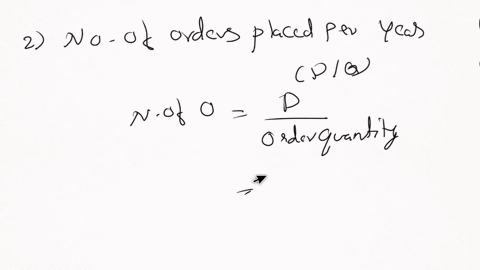 2) No. of orders placed per year
(D/Q)
N. of O = D / Order quantity
=